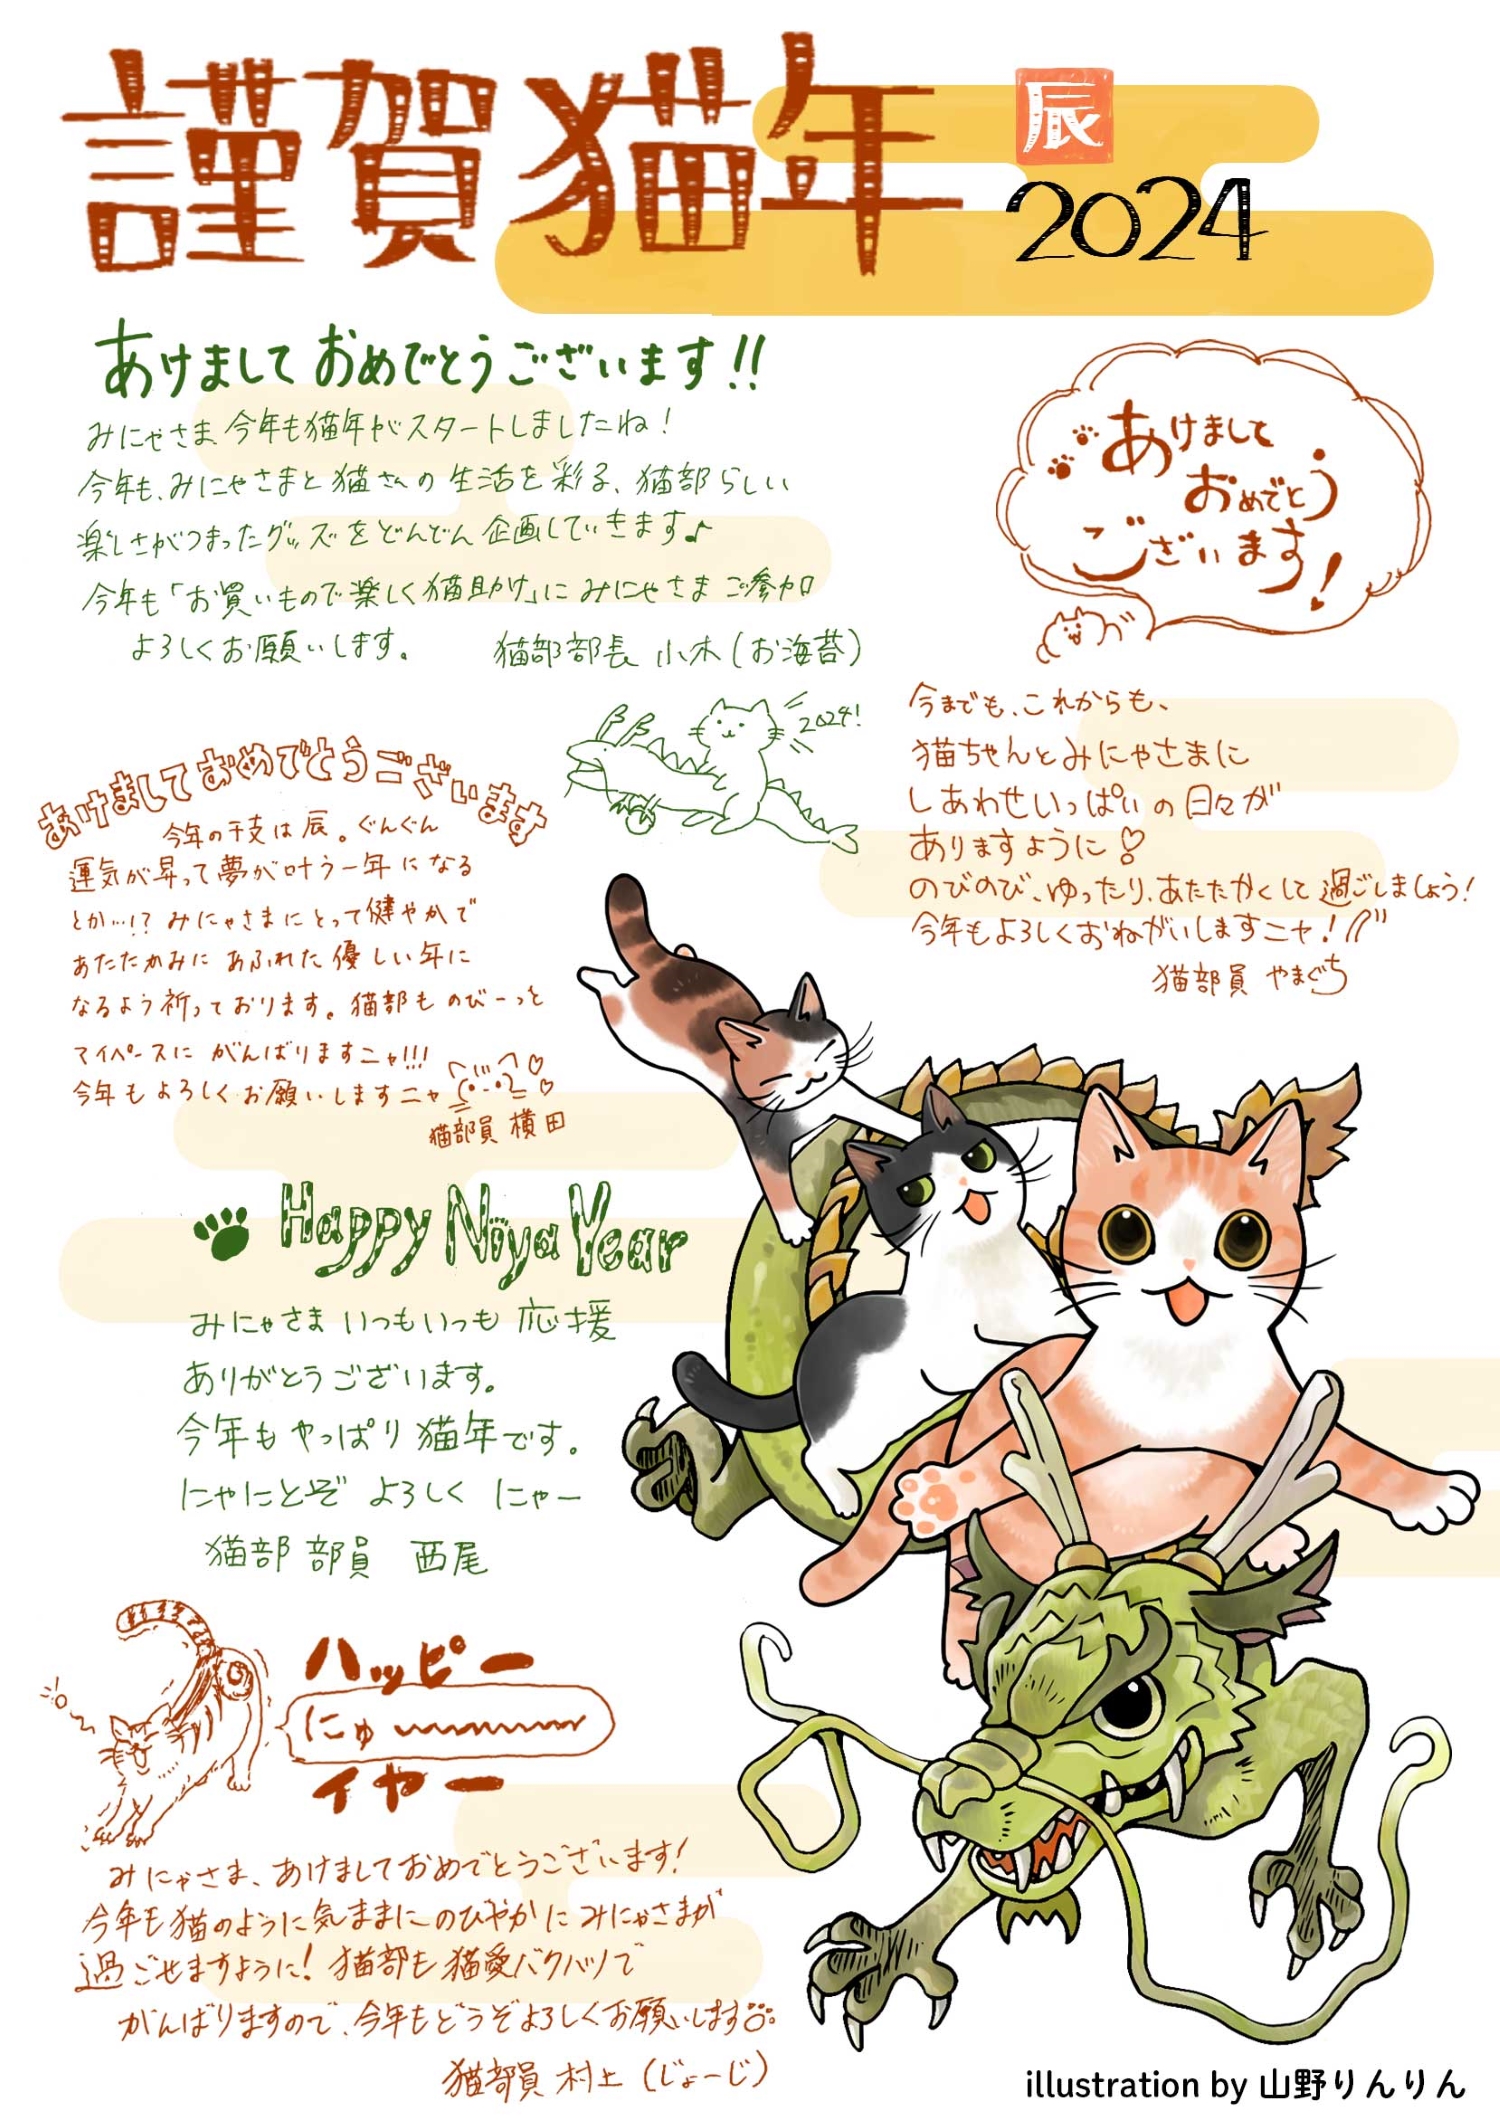 謹賀猫年
辰
2024
あけましておめでとうございます!!
みにゃさま 今年も猫年がスタートしましたね!
今年も、みにゃさまと猫さんの生活を彩る、猫部らしい
楽しさがつまったグッズをどんどん企画していきます♪
今年も「お買いもので楽しく猫助け」にみにゃさまご参加
よろしくお願いします。
猫部部長 小木(お海苔)
2024!
あけまして
おめでとう
ございます!
今までも、これからも、
猫ちゃんとみにゃさまに
しあわせいっぱいの日々が
ありますように♡
のびのび、ゆったり、あたたかくして過ごしましょう!
今年もよろしくおねがいしますニャ!
猫部員 やまぐち
あけましておめでとうございます
今年の干支は辰。ぐんぐん
運気が昇って夢が叶う一年になる
とか…!? みにゃさまにとって健やかで
あたたかみにあふれた優しい年に
なるよう祈っております。猫部ものびーっと
マイペースにがんばりますニャ!!!
今年もよろしくお願いしますニャ
猫部員 横田
Happy Niya Year
みにゃさま いつもいつも 応援
ありがとうございます。
今年もやっぱり猫年です。
にゃにとぞ よろしく にゃー
猫部部員 西尾
ハッピー
にゅ
イヤー
みにゃさま、あけましておめでとうございます!
今年も猫のように気ままにのびやかにみにゃさまが
過ごせますように! 猫部も猫愛バクハツで
がんばりますので、今年もどうぞよろしくお願いします
猫部員 村上(じょーじ)
illustration by 山野りんりん